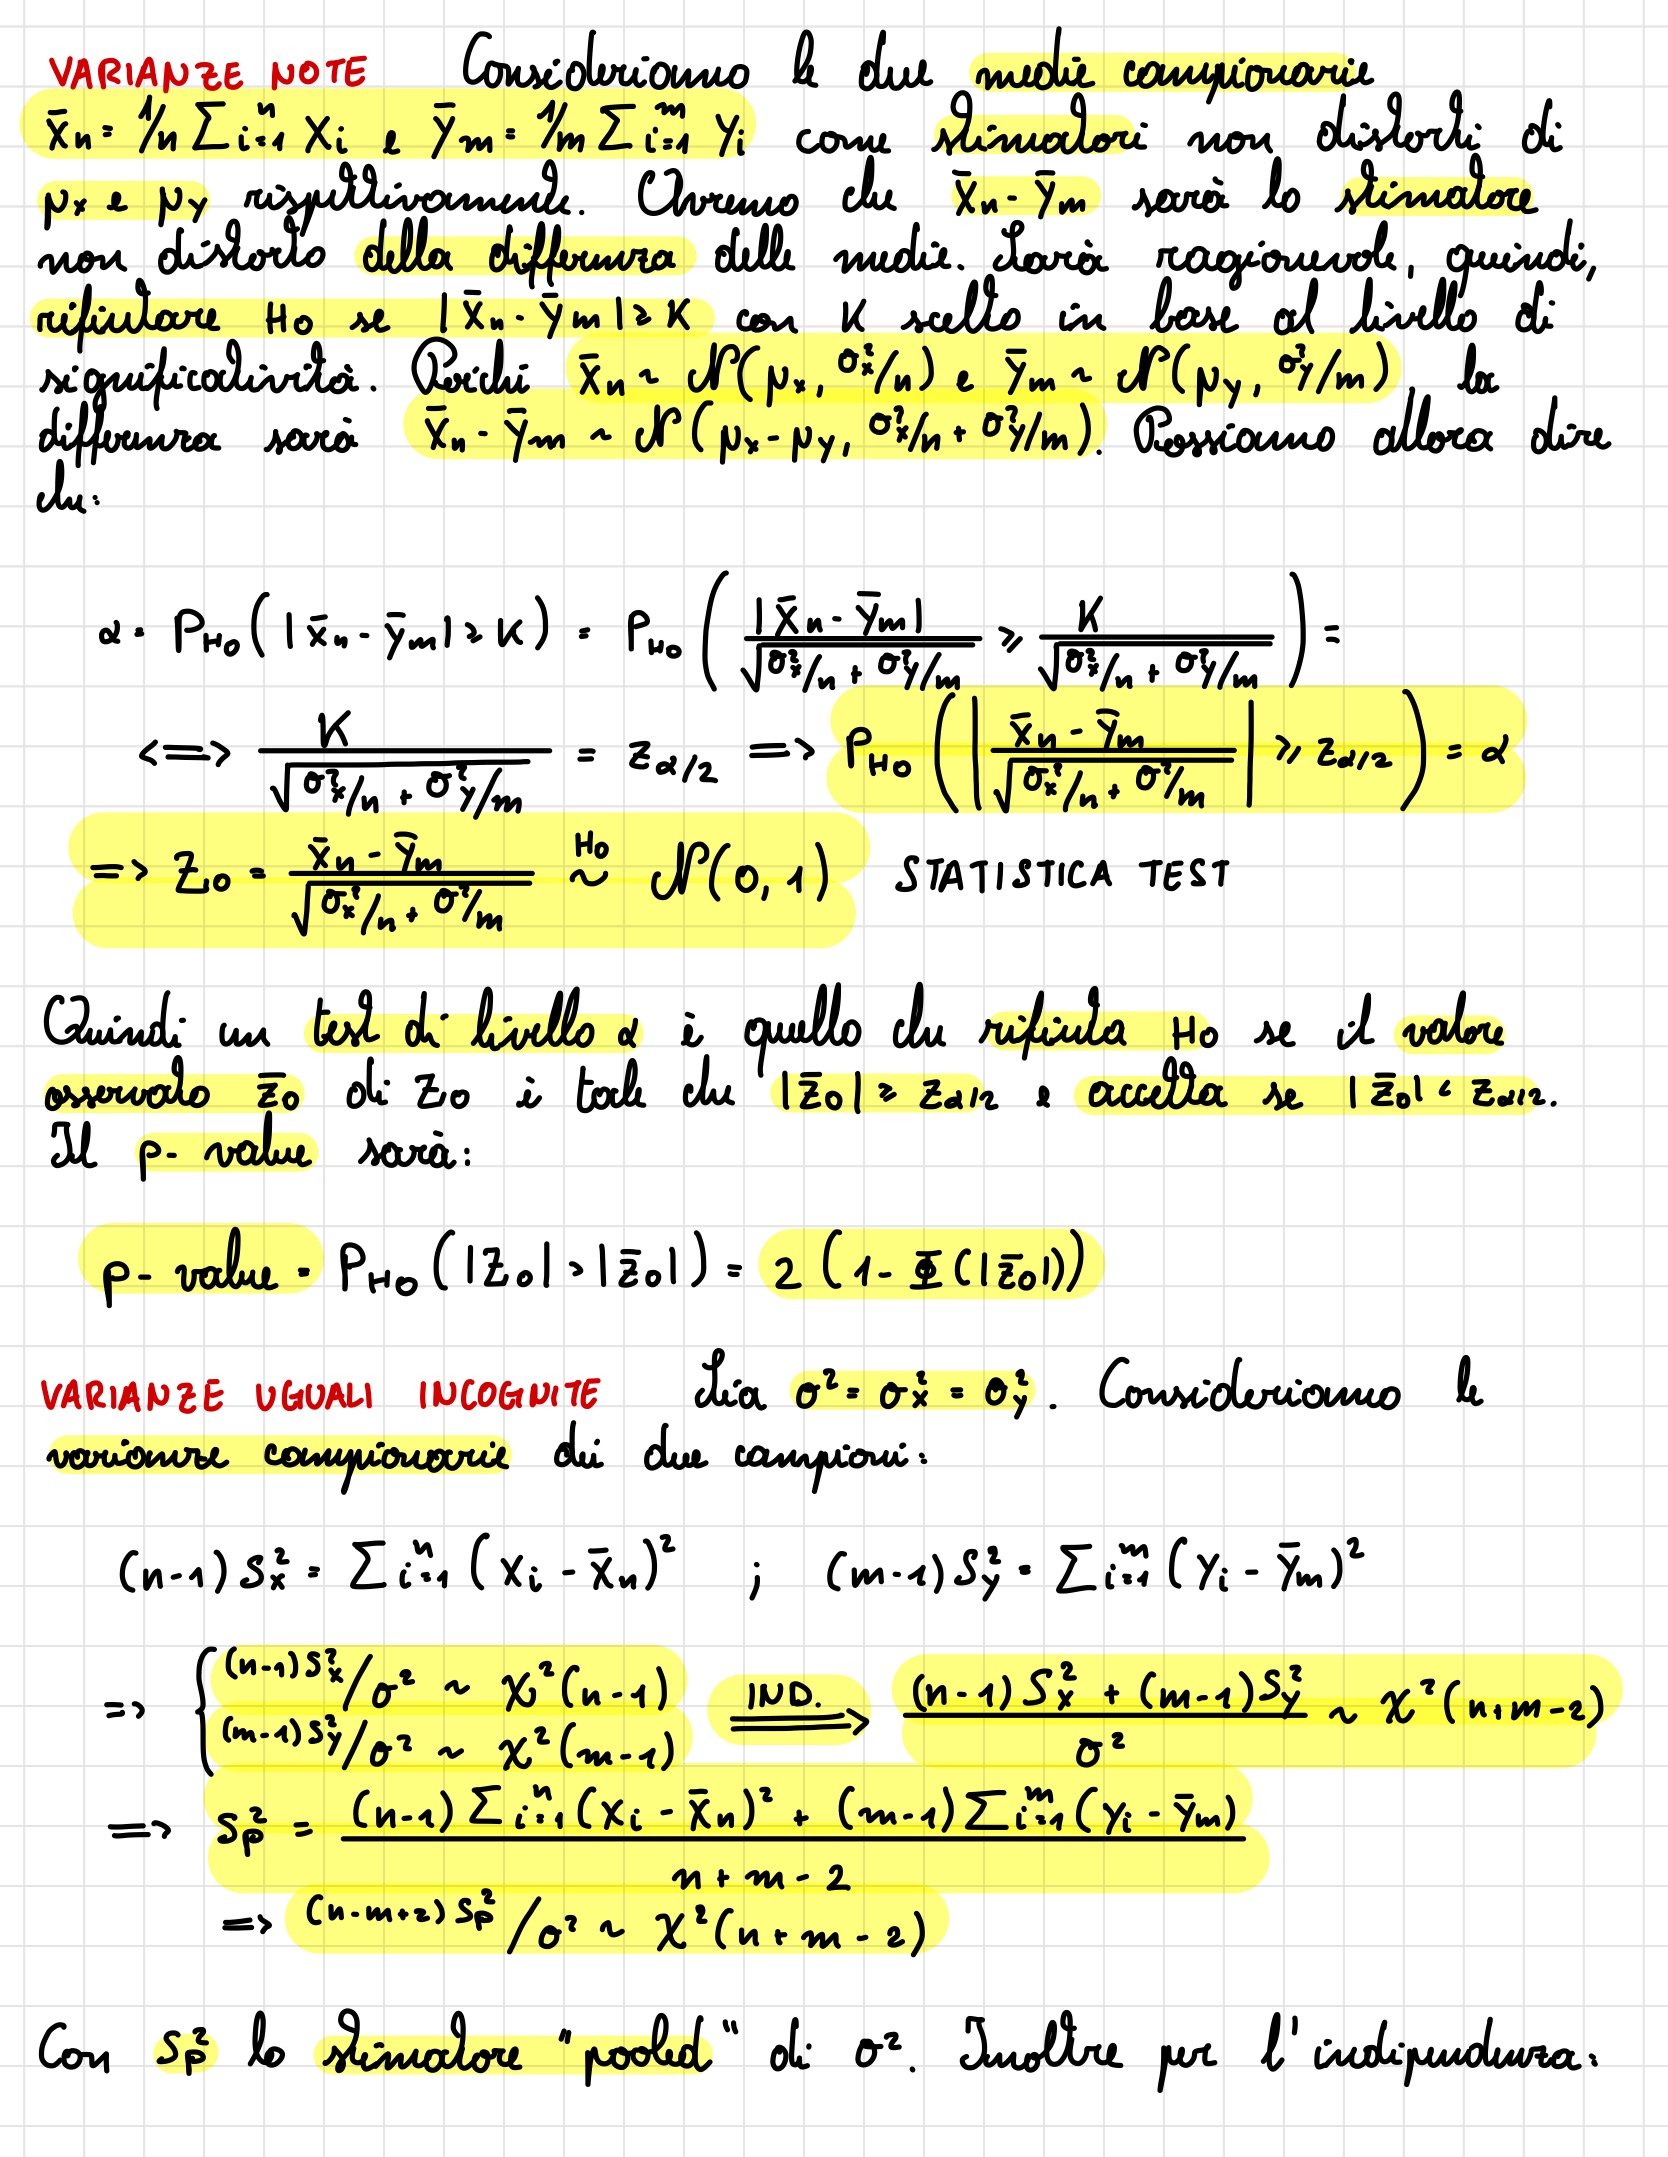 VARIANZE NOTE Consideriamo le due medie campionarie
X̄n = 1/n ∑ i=1^n Xi e Ȳm = 1/m ∑ i=1^m Yi come stimatori non distorti di
μx e μy rispettivamente. Avremo che X̄n - Ȳm sarà lo stimatore
non distorto della differenza delle medie. Sarà ragionevole, quindi,
rifiutare H0 se |X̄n - Ȳm| ≥ K con K scelto in base al livello di
significatività. Poiché X̄n ~ N(μx, σ²x/n) e Ȳm ~ N(μy, σ²y/m), la
differenza sarà X̄n - Ȳm ~ N(μx - μy, σ²x/n + σ²y/m). Possiamo allora dire
che:
α = PH0(|X̄n - Ȳm| ≥ K) = PH0( |X̄n - Ȳm| / √(σ²x/n + σ²y/m) ≥ K / √(σ²x/n + σ²y/m) ) =
<=> K / √(σ²x/n + σ²y/m) = zα/2 => PH0( | (X̄n - Ȳm) / √(σ²x/n + σ²/m) | ≥ zα/2 ) = α
=> Z0 = (X̄n - Ȳm) / √(σ²x/n + σ²/m) ~^H0 N(0, 1) STATISTICA TEST
Quindi un test di livello α è quello che rifiuta H0 se il valore
osservato z̄0 di Z0 è tale che |z̄0| ≥ zα/2 e accetta se |z̄0| < zα/2.
Il p-value sarà:
p-value = PH0(|Z0| > |z̄0|) = 2(1 - Φ(|z̄0|))
VARIANZE UGUALI INCOGNITE Sia σ² = σ²x = σ²y. Consideriamo le
varianze campionarie dei due campioni:
(n-1)S²x = ∑ i=1^n (Xi - X̄n)² ; (m-1)S²y = ∑ i=1^m (Yi - Ȳm)²
=> { (n-1)S²x/σ² ~ χ²(n-1)
(m-1)S²y/σ² ~ χ²(m-1) IND. => ((n-1)S²x + (m-1)S²y) / σ² ~ χ²(n+m-2)
=> S²p = ((n-1) ∑ i=1^n (Xi - X̄n)² + (m-1) ∑ i=1^m (Yi - Ȳm)) / (n+m-2)
=> (n-m+2)S²p/σ² ~ χ²(n+m-2)
Con S²p lo stimatore "pooled" di σ². Inoltre per l'indipendenza: